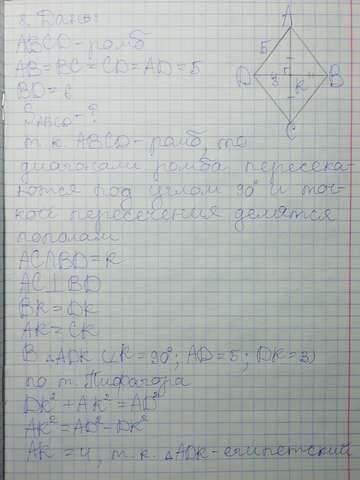 8. Дано:
ABCD - ромб
AB = BC = CD = AD = 5
BD = 6
S ABCD - ?
т.к. ABCD - ромб, то
диагонали ромба пересека-
ются под углом 90° и точ-
кой пересечения делятся
пополам
AC∩BD = K
AC⊥BD
BK = DK
AK = CK
В △ADK (∠K = 90°; AD = 5; DK = 3)
по т. Пифагора
DK² + AK² = AD²
AK² = AD² - DK²
AK = 4, т.к. △ADK - египетский
A
5
D
3
K
B
C